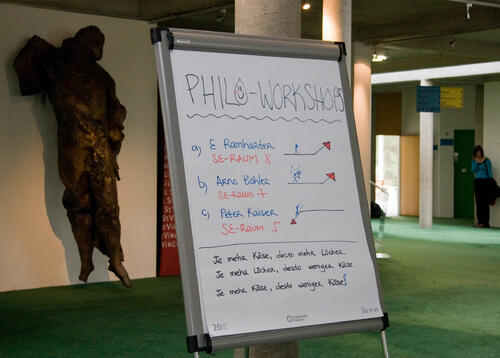 PHILO-WORKSHOPS
a) E. Ramharter
SE-RAUM 8
b) Arno Böhler
SE-RAUM 7
c) Peter Kaiser
SE-RAUM 5
Je mehr Käse, desto mehr Löcher.
Je mehr Löcher, desto weniger Käse.
Je mehr Käse, desto weniger Käse!
20